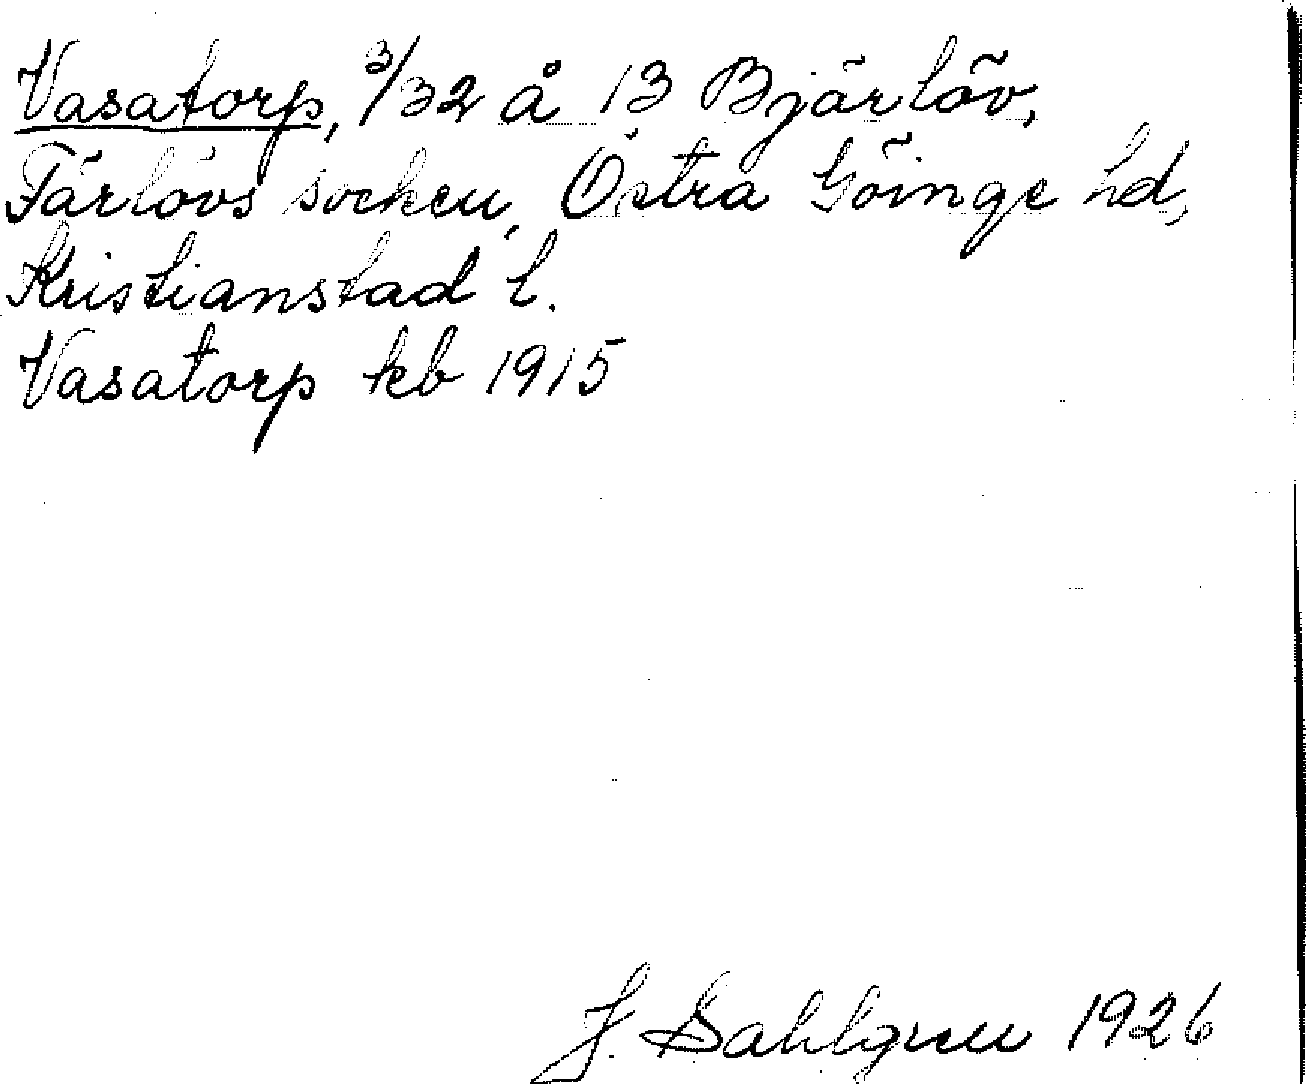 Vasatorp, 3/32 å 13 Bjärlöv,
Färlövs socken, Östra Göinge hd,
Kristianstad l.
Vasatorp kb 1915
J. Dahlgren 1926